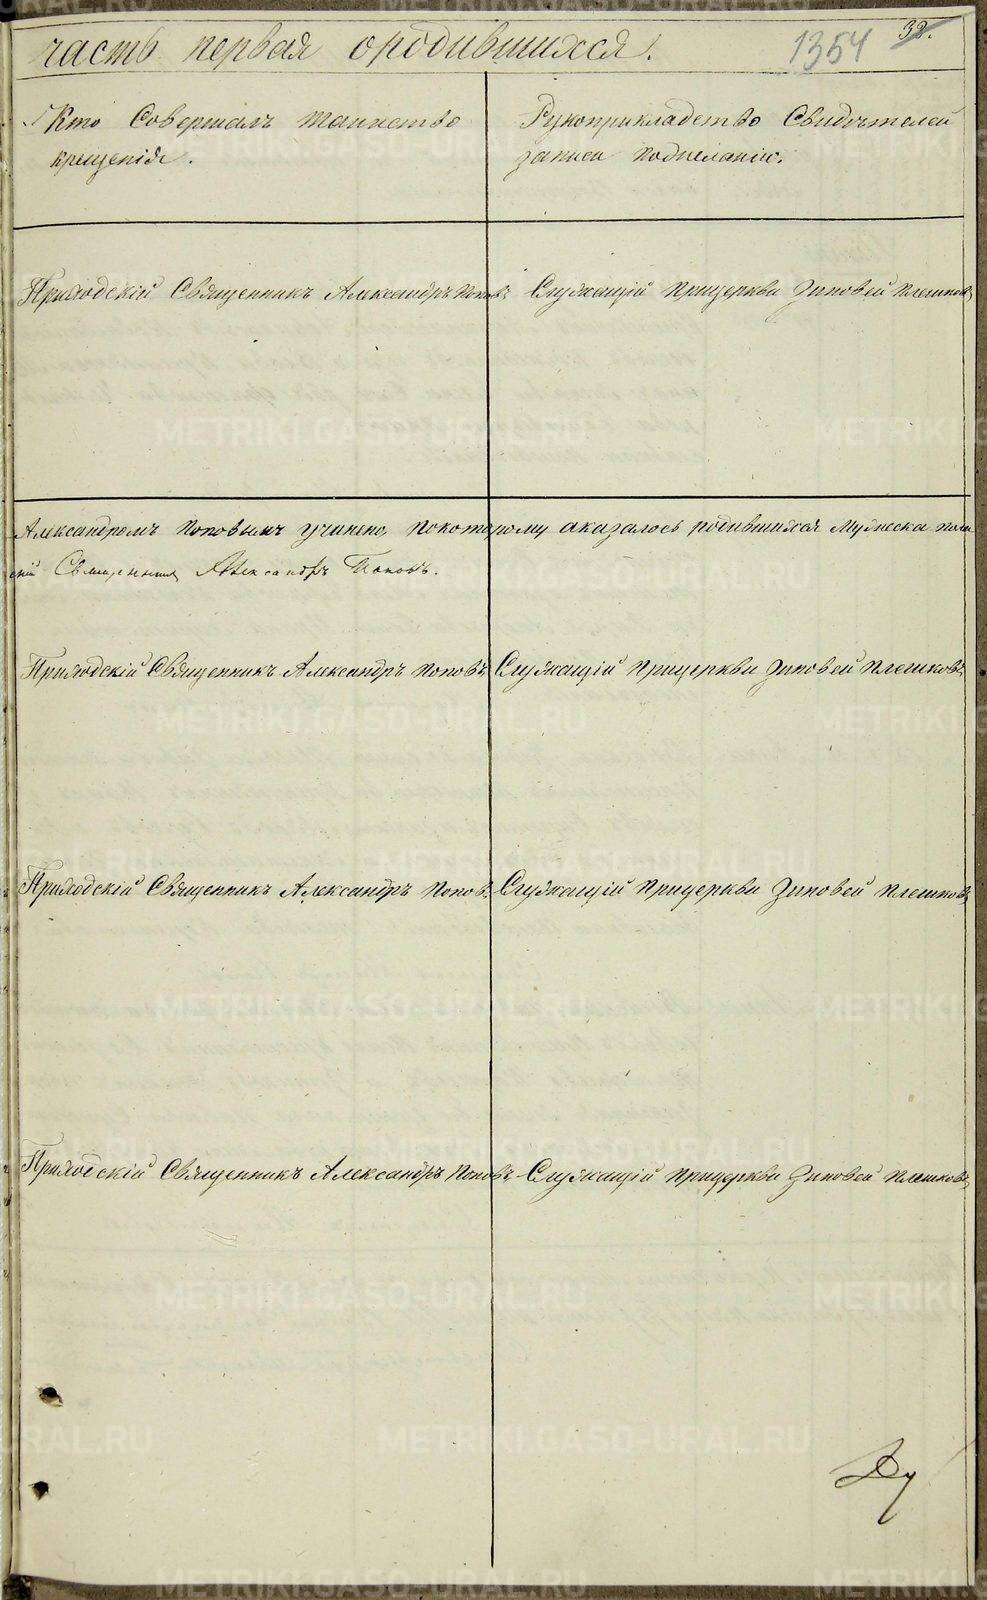 часть первая ородившихся.
1354
32.
Кто Совершалъ таинство
крещенія.
Рукоприкладство Свидѣтелей
записи пожеланію.
Приходскій Священникъ Александръ Поповъ
Служащій Прицеркви Зиновей Плешковъ
Александромъ Поповымъ учинено, Покоторому аказалось родившихся Мужеска пола
Священникъ Александръ Поповъ.
Приходскій Священникъ Александръ Поповъ
Служащій Прицеркви Зиновей Плешковъ
Приходскій Священникъ Александръ Поповъ
Служащій Прицеркви Зиновей Плешковъ
Приходскій Священникъ Александръ Поповъ
Служащій Прицеркви Зиновей Плешковъ
METRIKI.GASO-URAL.RU